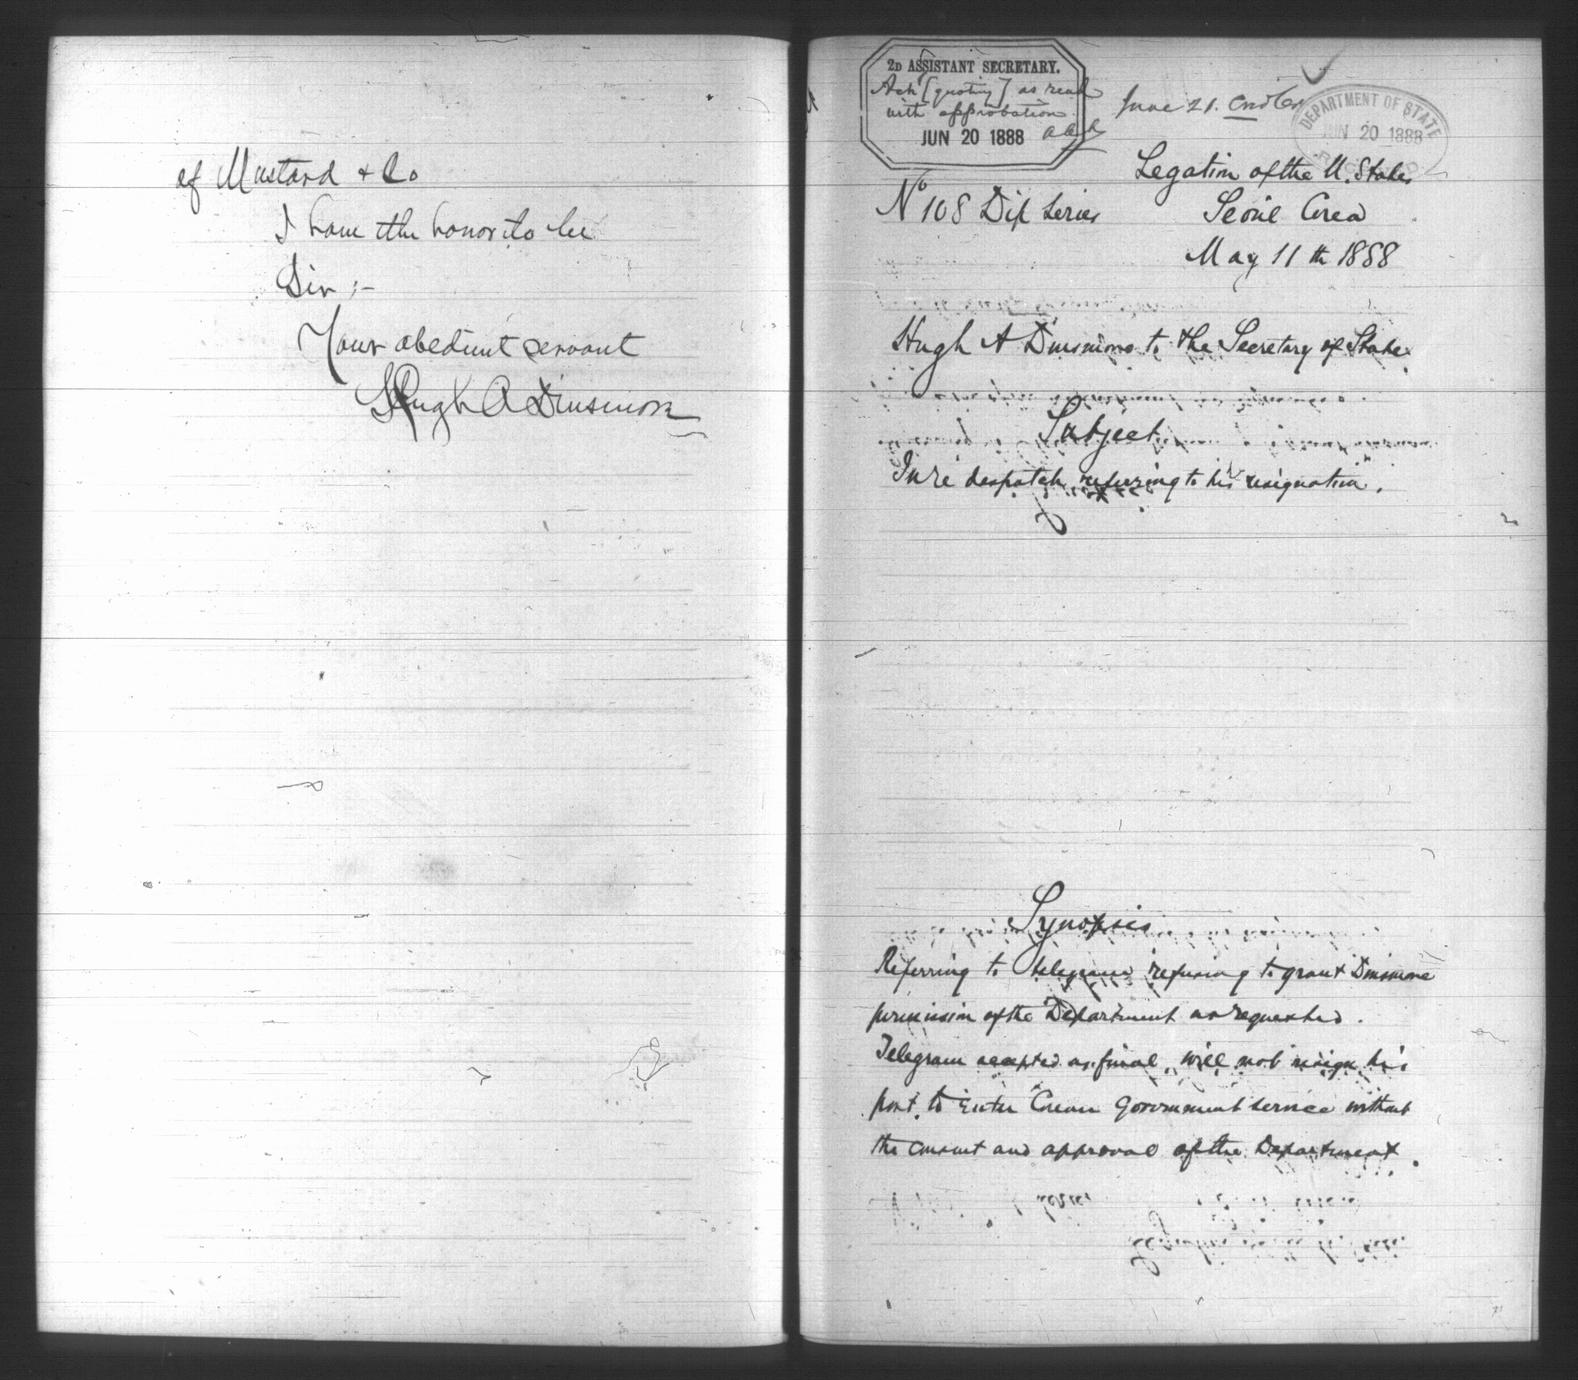 of Mustard & Co
I have the honor to be
Sir :-
Your obedient servant
Hugh A Dinsmore
2D ASSISTANT SECRETARY.
Ack [quoting] as read
with approbation
JUN 20 1888
June 21.
DEPARTMENT OF STATE
JUN 20 1888
Legation of the U. States
No 108 Dip Series
Seoul Corea
May 11th 1888
Hugh A Dinsmore to the Secretary of State
Subject
In re despatch referring to his resignation.
Synopsis
Referring to telegram refusing to grant Dinsmore
permission of the Department as requested.
Telegram accepted as final, will not resign his
post to Enter Corean Government service without
the consent and approval of the Department.